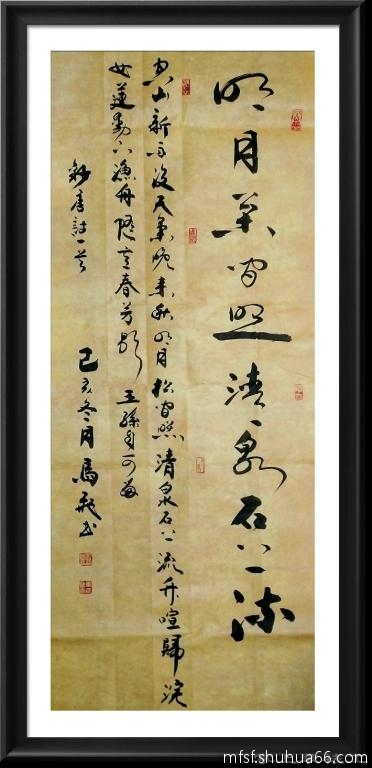 明月間照清泉石上流
空山新雨後天氣晚来秋明月松間照清泉石上流竹喧歸浣
女蓮動下漁舟隨意春芳歇 王孫自可留
鈔唐詩一首
己亥冬月馬飛书
mfsf.shuhua66.com